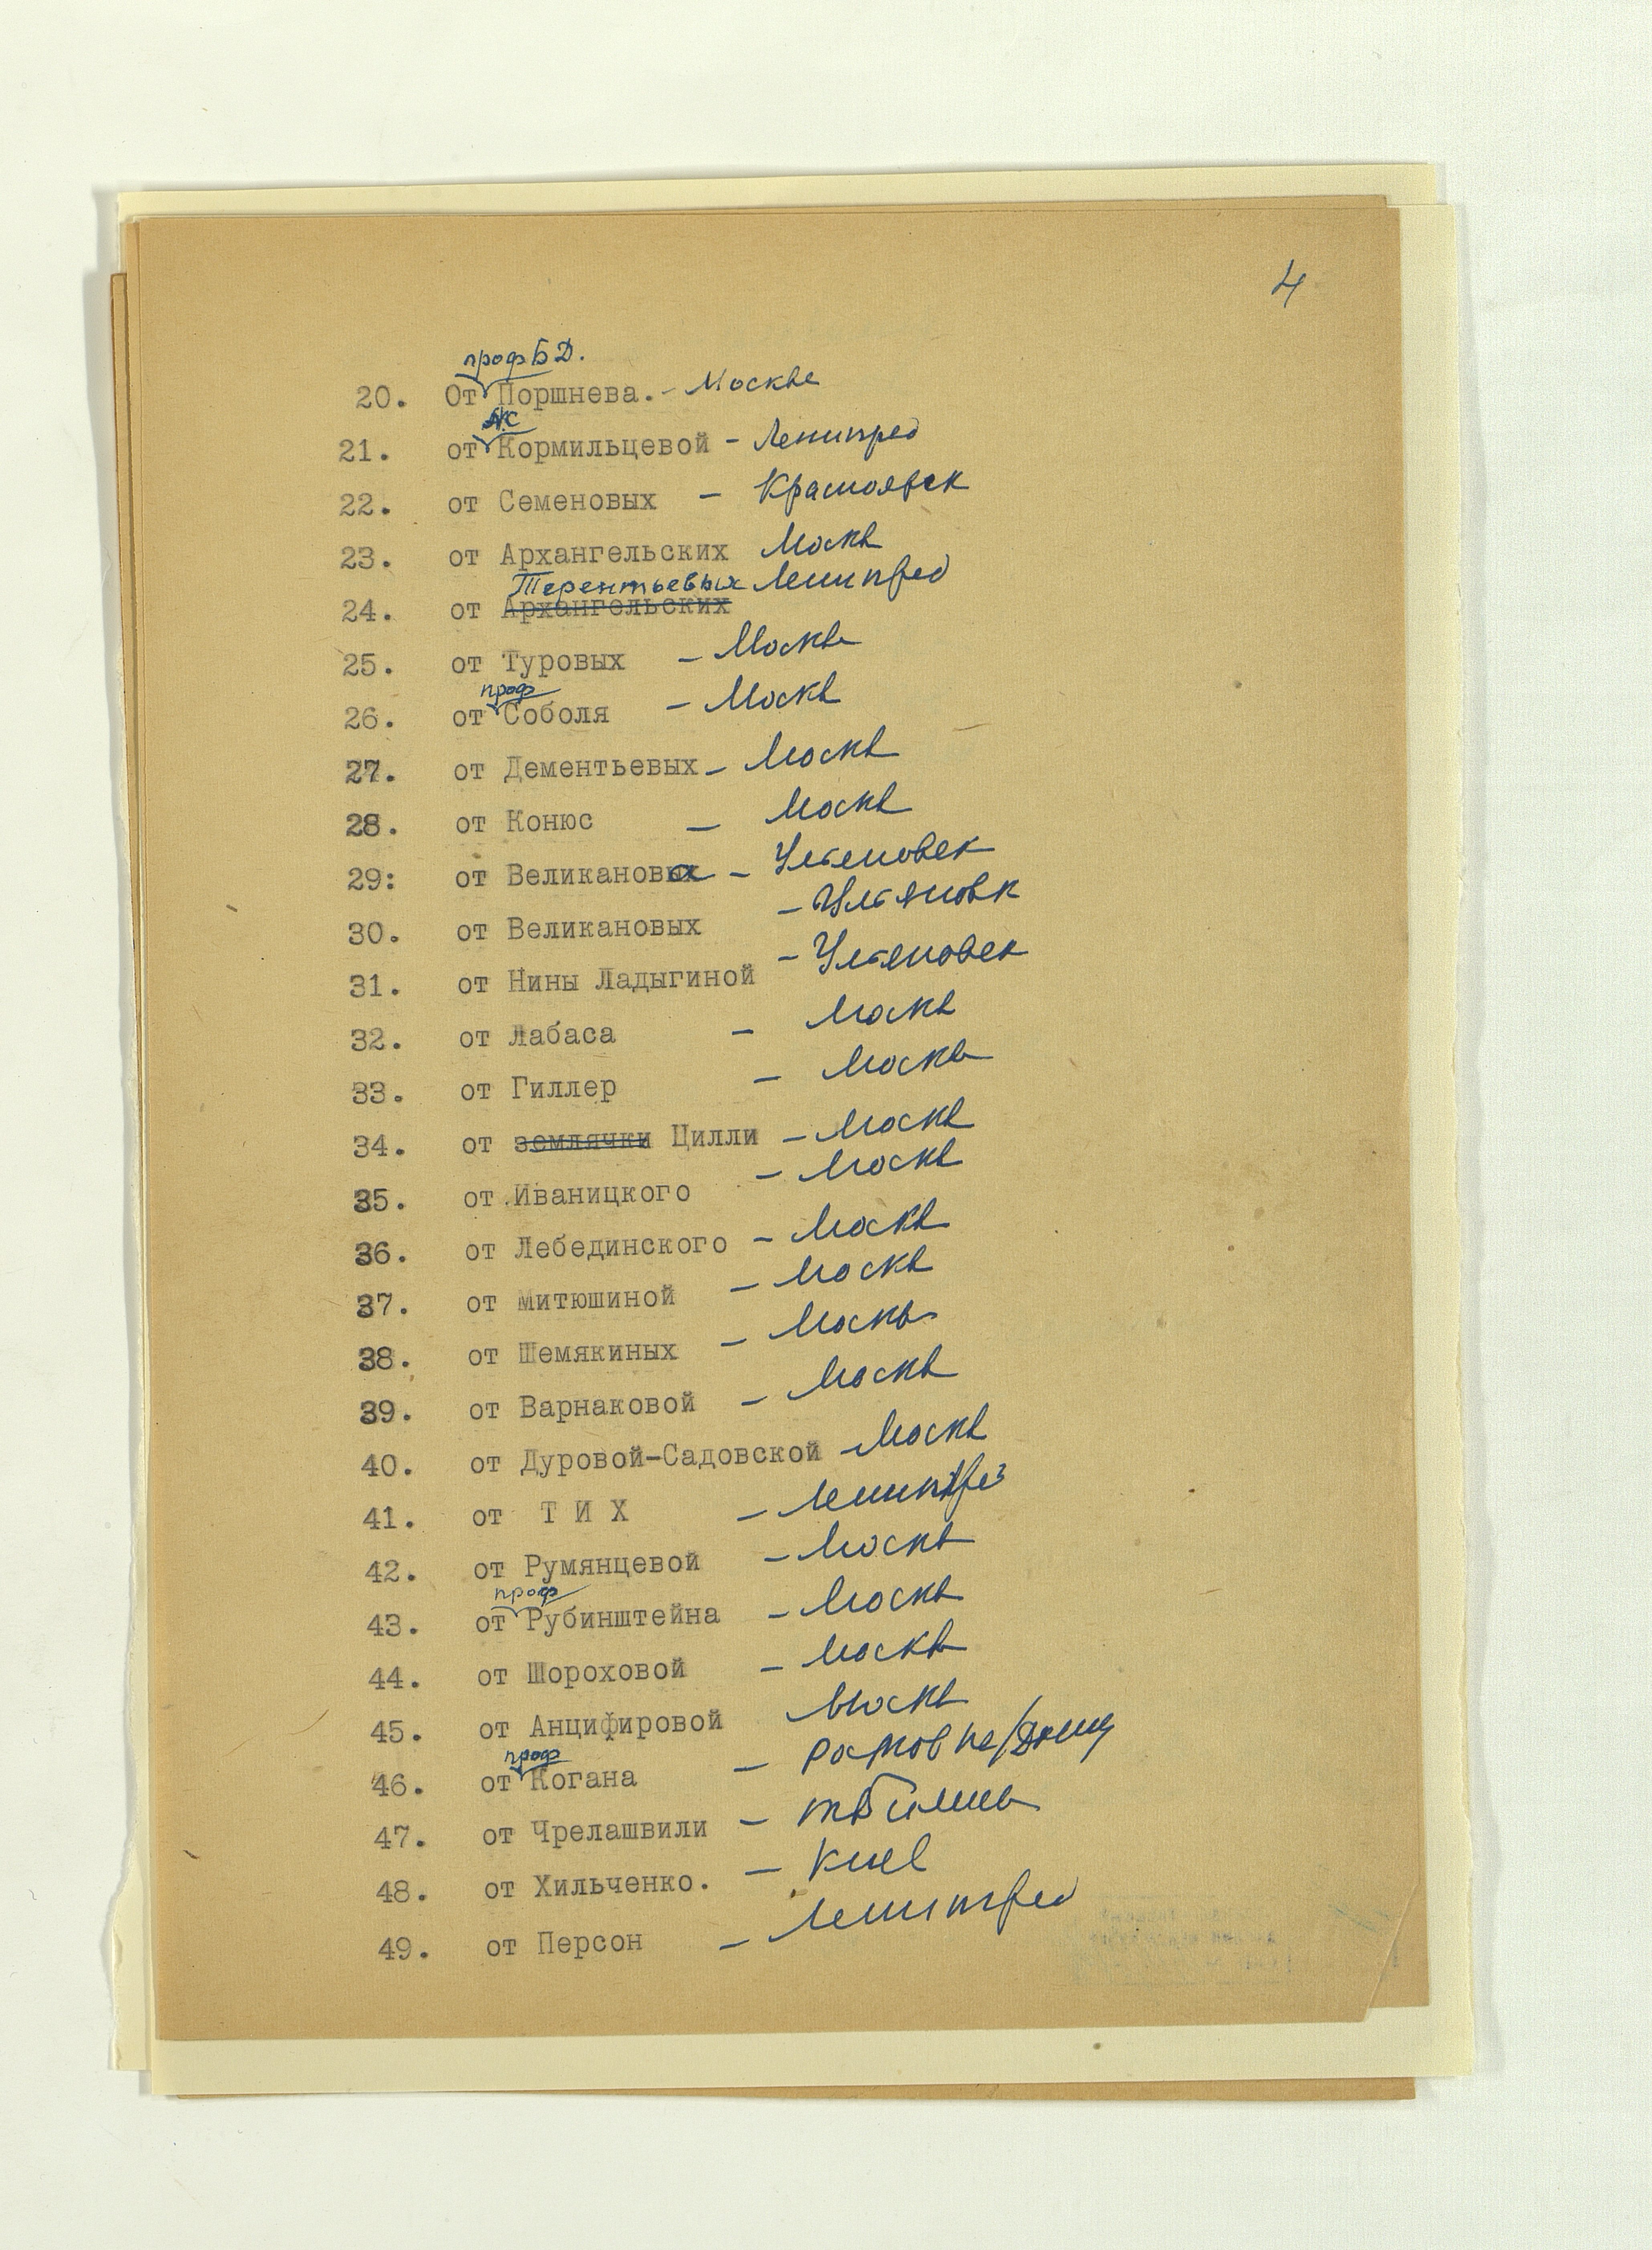 4
проф Б Д.
20. От Поршнева. - Москве
N.C
21. от Кормильцевой - Ленинград
22. от Семеновых - Красноярск
23. от Архангельских Москва
Терентьевых Ленинград
24. от Архангельских
25. от Туровых - Москва
проф
26. от Соболя - Москва
27. от Дементьевых - Москва
28. от Конюс - Москва
29: от Великановых - Ульяновск
30. от Великановых - Ульяновск
31. от Нины Ладыгиной - Ульяновск
32. от Лабаса - Москва
33. от Гиллер - Москва
34. от землячки Цилли - Москва
35. от Иваницкого - Москва
36. от Лебединского - Москва
37. от Митюшиной - Москва
38. от Шемякиных - Москва
39. от Варнаковой - Москва
40. от Дуровой-Садовской - Москва
41. от Т И Х - Ленинград
42. от Румянцевой - Москва
проф
43. от Рубинштейна - Москва
44. от Шороховой - Москва
45. от Анцифировой Москва
проф
46. от Когана - Ростов на/Дону
47. от Чрелашвили - Тбилиси
48. от Хильченко. - Киев
49. от Персон - Ленинград